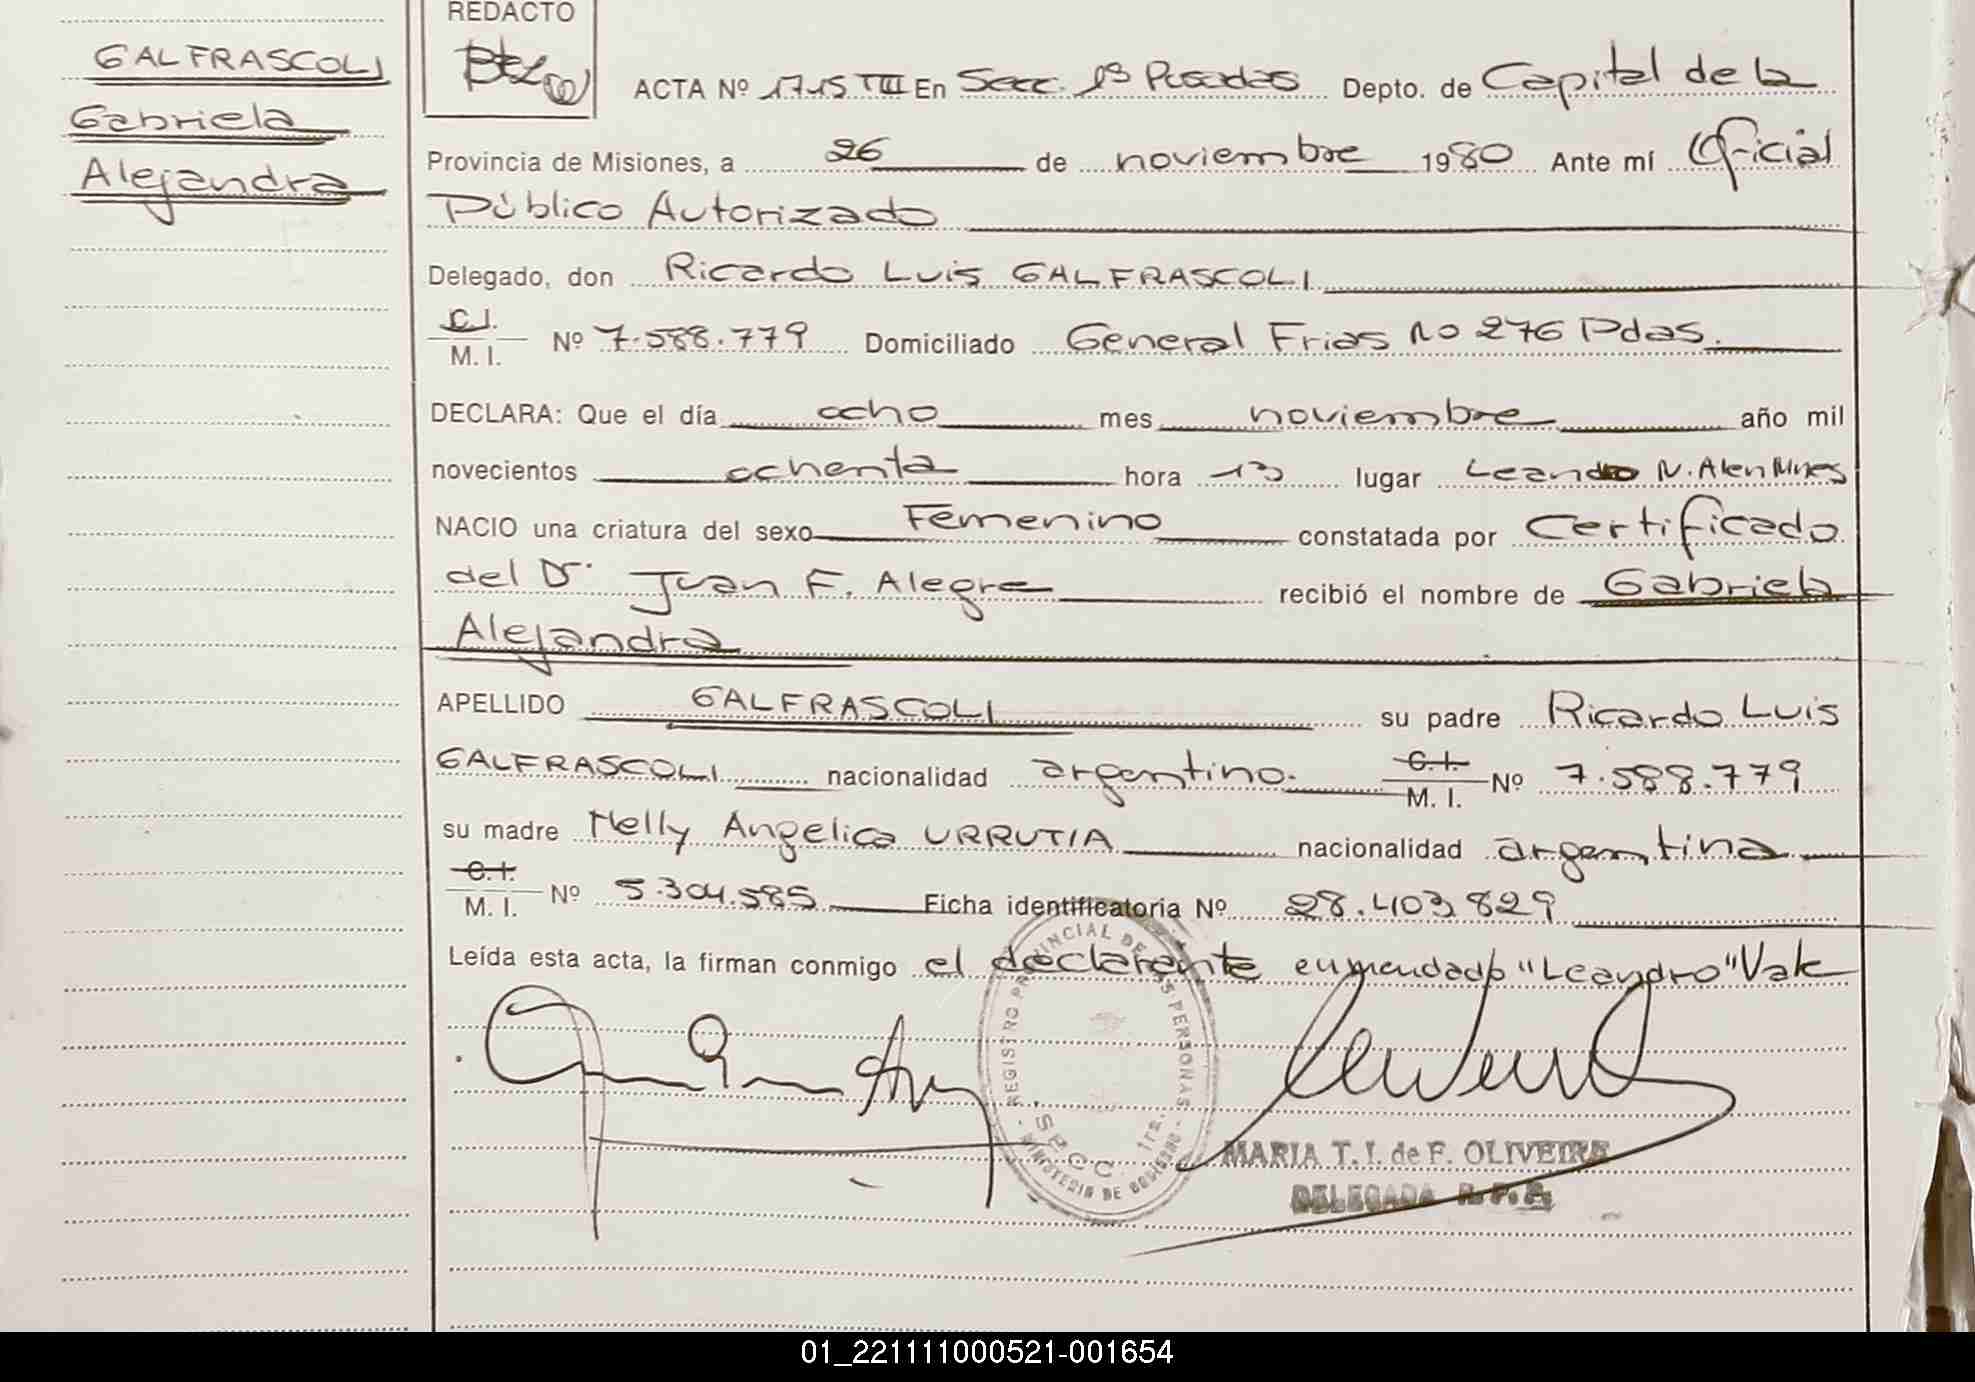 REDACTO
GALFRASCOLI
Gabriela
Alejandra
ACTA Nº 1715 TIII En Secc. 1ª Posadas Depto. de Capital de la
Provincia de Misiones, a 26 de noviembre 1980 Ante mí Oficial
Público Autorizado
Delegado, don Ricardo Luis GALFRASCOLI
C.I.
M. I. Nº 7.588.779 Domiciliado General Frias No 276 Pdas.
DECLARA: Que el día ocho mes noviembre año mil
novecientos ochenta hora 13 lugar Leandro N. Alen Mnes
NACIO una criatura del sexo Femenino constatada por Certificado
del Dr. Juan F. Alegre recibió el nombre de Gabriela
Alejandra
APELLIDO GALFRASCOLI su padre Ricardo Luis
GALFRASCOLI nacionalidad argentino. C.I.
M. I. Nº 7.588.779
su madre Nelly Angelica URRUTIA nacionalidad argentina
C.I.
M. I. Nº 5.304.585 Ficha identificatoria Nº 28.403.829
Leída esta acta, la firman conmigo el declarante enmendado "Leandro" Vale
REGISTRO PROVINCIAL DE LAS PERSONAS
Secc. 1ra.
MINISTERIO DE GOBIERNO
MARIA T. I. de F. OLIVEIRA
DELEGADA R. P. P.
01_221111000521-001654